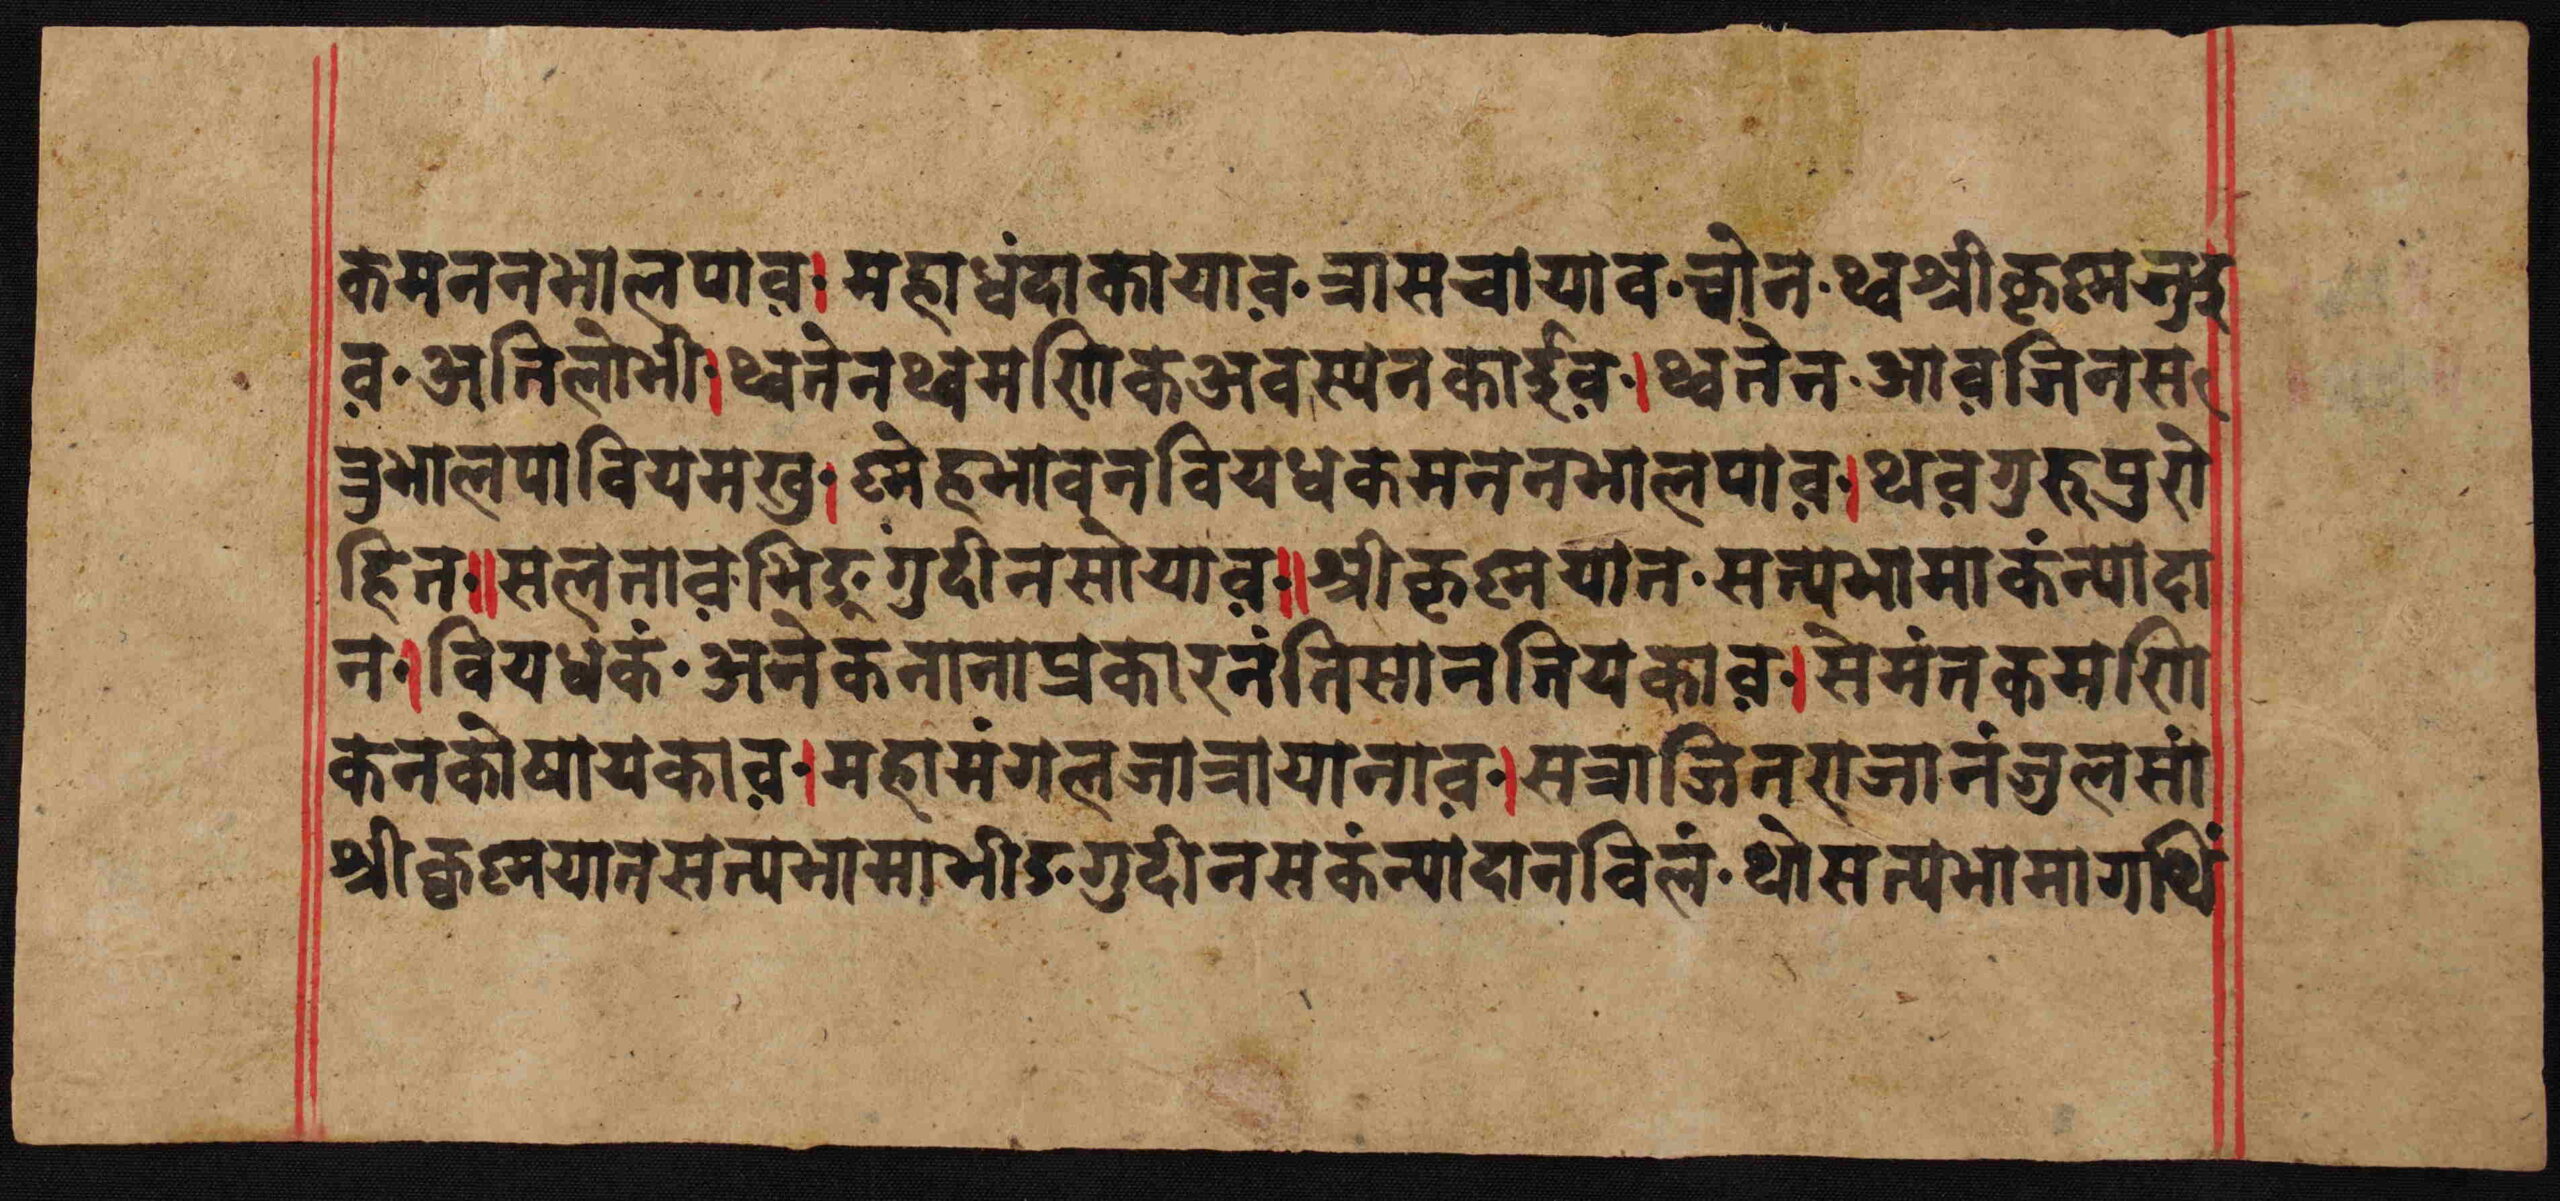 कमननभालपाव़। महाध्वंदाकायाव़· त्रासचायाव· च्वोन· थ्वश्रीकृष्मनुइ
व़· अतिलोभी। थ्वतेनथ्वमणिकअवस्यनकाईव़। थ्वतेन· आव़जिनस
त्रभालपावियमखु। ष्मेहभाव्नवियधकमननभालपाव़। थव़गुरूपुरो
हित॥ सलताव़भिङ्गुदीनसोयाव़॥ श्रीकृष्मयात· सत्यभामाकंन्यादा
न। वियधकं· अनेकनानाप्रकारनंतिसानतियकाव़। सेमंतकमणि
कनकोषायकाव़। महामंगलजात्रायानाव़। सत्राजितराजानंजुलसां
श्रीकृष्मयातसत्यभामाभीङगुदीनसकंन्यादानविलं· थोसत्यभामागथिं